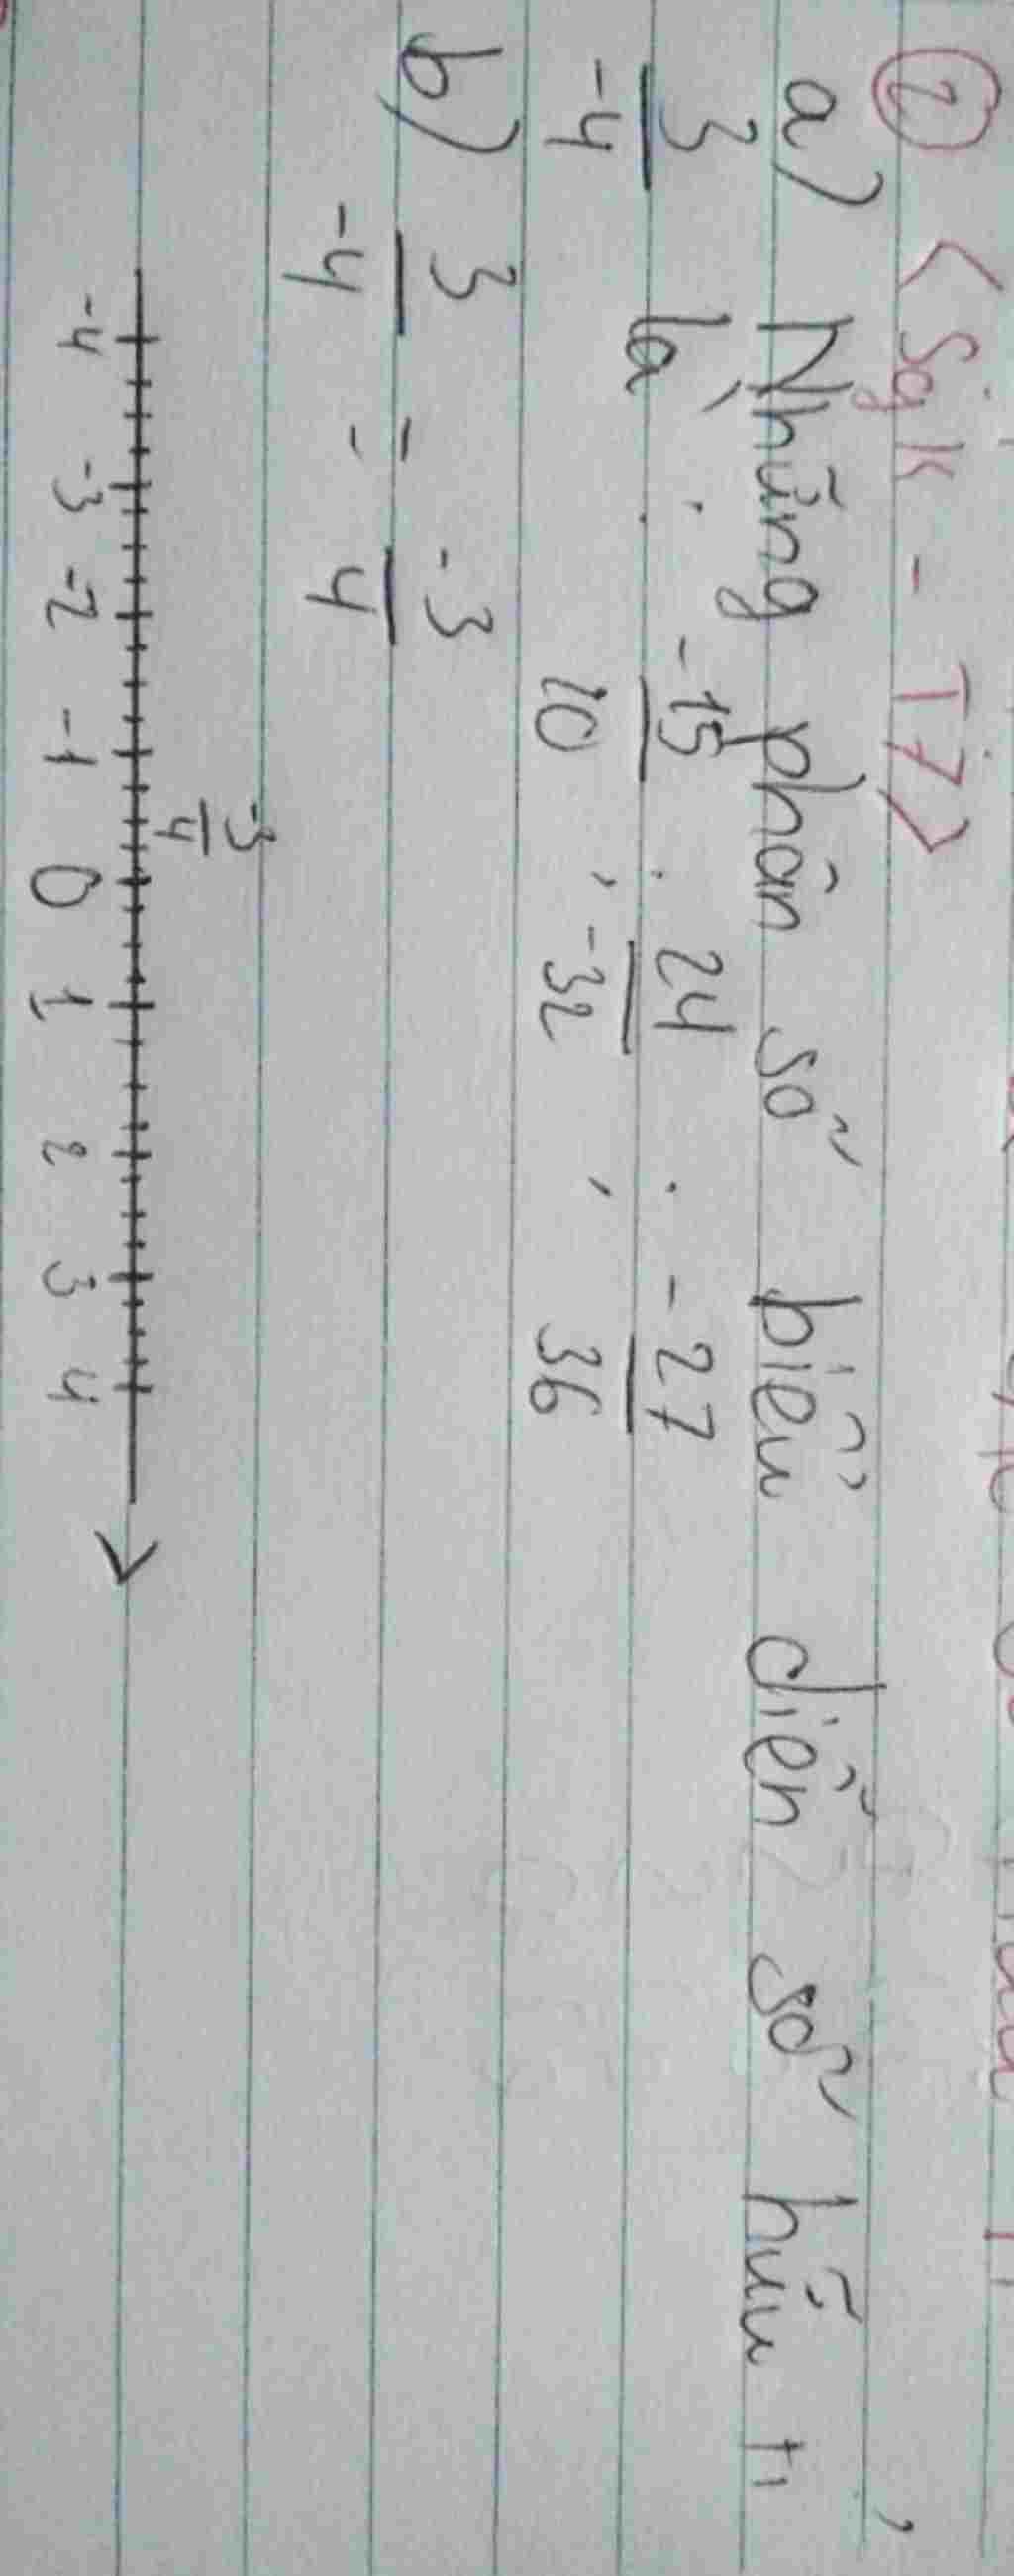 ② < Sgk - T7 >
a) Những phân số biểu diễn số hữu tỉ
3/-4 là : -15/10 ; 24/-32 ; -27/36
b) 3/-4 = -3/4
-3/4
-4 -3 -2 -1 0 1 2 3 4